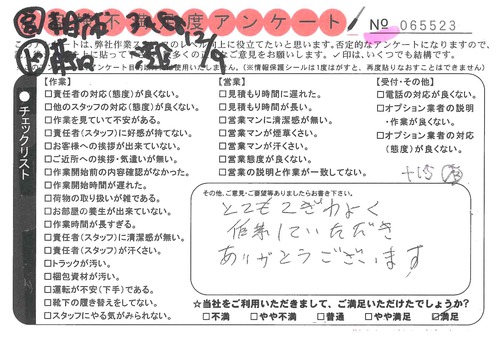 不満度アンケート
No 065523
12/9
このアンケートは、弊社作業スタッフのレベル向上に役立てたいと思います。否定的なアンケートになりますので、
✓印は、いくつでも結構です。
(※情報保護シールは1度はがすと、再度貼りなおすことはできません)
チェックリスト
【作業】
□責任者の対応(態度)が良くない。
□他のスタッフの対応(態度)が良くない。
□作業を見ていて不安がある。
□責任者(スタッフ)に好感が持てない。
□お客様への挨拶が出来ていない。
□ご近所への挨拶・気遣いが無い。
□作業開始前の内容確認がなかった。
□作業開始時間が遅れた。
□荷物の取り扱いが雑である。
□お部屋の養生が出来ていない。
□作業時間が長すぎる。
□責任者(スタッフ)に清潔感が無い。
□責任者(スタッフ)が汗くさい。
□トラックが汚い。
□梱包資材が汚い。
□運転が不安(下手)である。
□靴下の履き替えをしてない。
□スタッフにやる気がみられない。
【営業】
□見積時間に遅れた。
□見積もり時間が長い。
□営業マンに清潔感が無い。
□営業マンが煙草くさい。
□営業マンが汗くさい。
□営業態度が良くない。
□営業の説明と作業が一致してない。
【受付・その他】
□電話の対応が良くない。
□オプション業者の説明
・作業が良くない。
□オプション業者の対応
(態度)が良くない。
その他、ご意見・ご要望等ありましたらお書き下さい。
とてもてぎわよく
作業していただき
ありがとうございます
☆当社をご利用いただきまして、ご満足いただけたでしょうか?
□不満 □やや不満 □普通 □やや満足 ☑満足